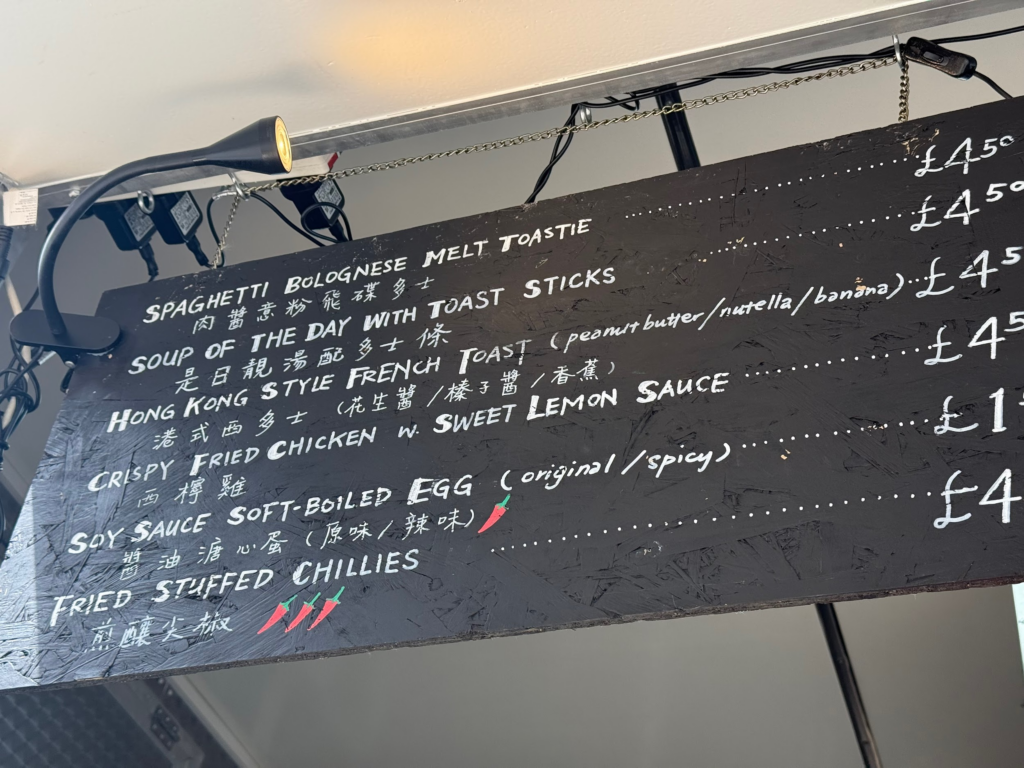 SPAGHETTI BOLOGNESE MELT TOASTIE ........ £4.50
肉醬意粉飛碟多士
SOUP OF THE DAY WITH TOAST STICKS ........ £4.50
是日靚湯配多士條
HONG KONG STYLE FRENCH TOAST (peanut butter/nutella/banana) .. £4.5
港式西多士 (花生醬/榛子醬/香蕉)
CRISPY FRIED CHICKEN w. SWEET LEMON SAUCE ........ £4.5
西檸雞
SOY SAUCE SOFT-BOILED EGG (original/spicy) ........ £1
醬油溏心蛋 (原味/辣味)
FRIED STUFFED CHILLIES ........ £4
煎釀尖椒